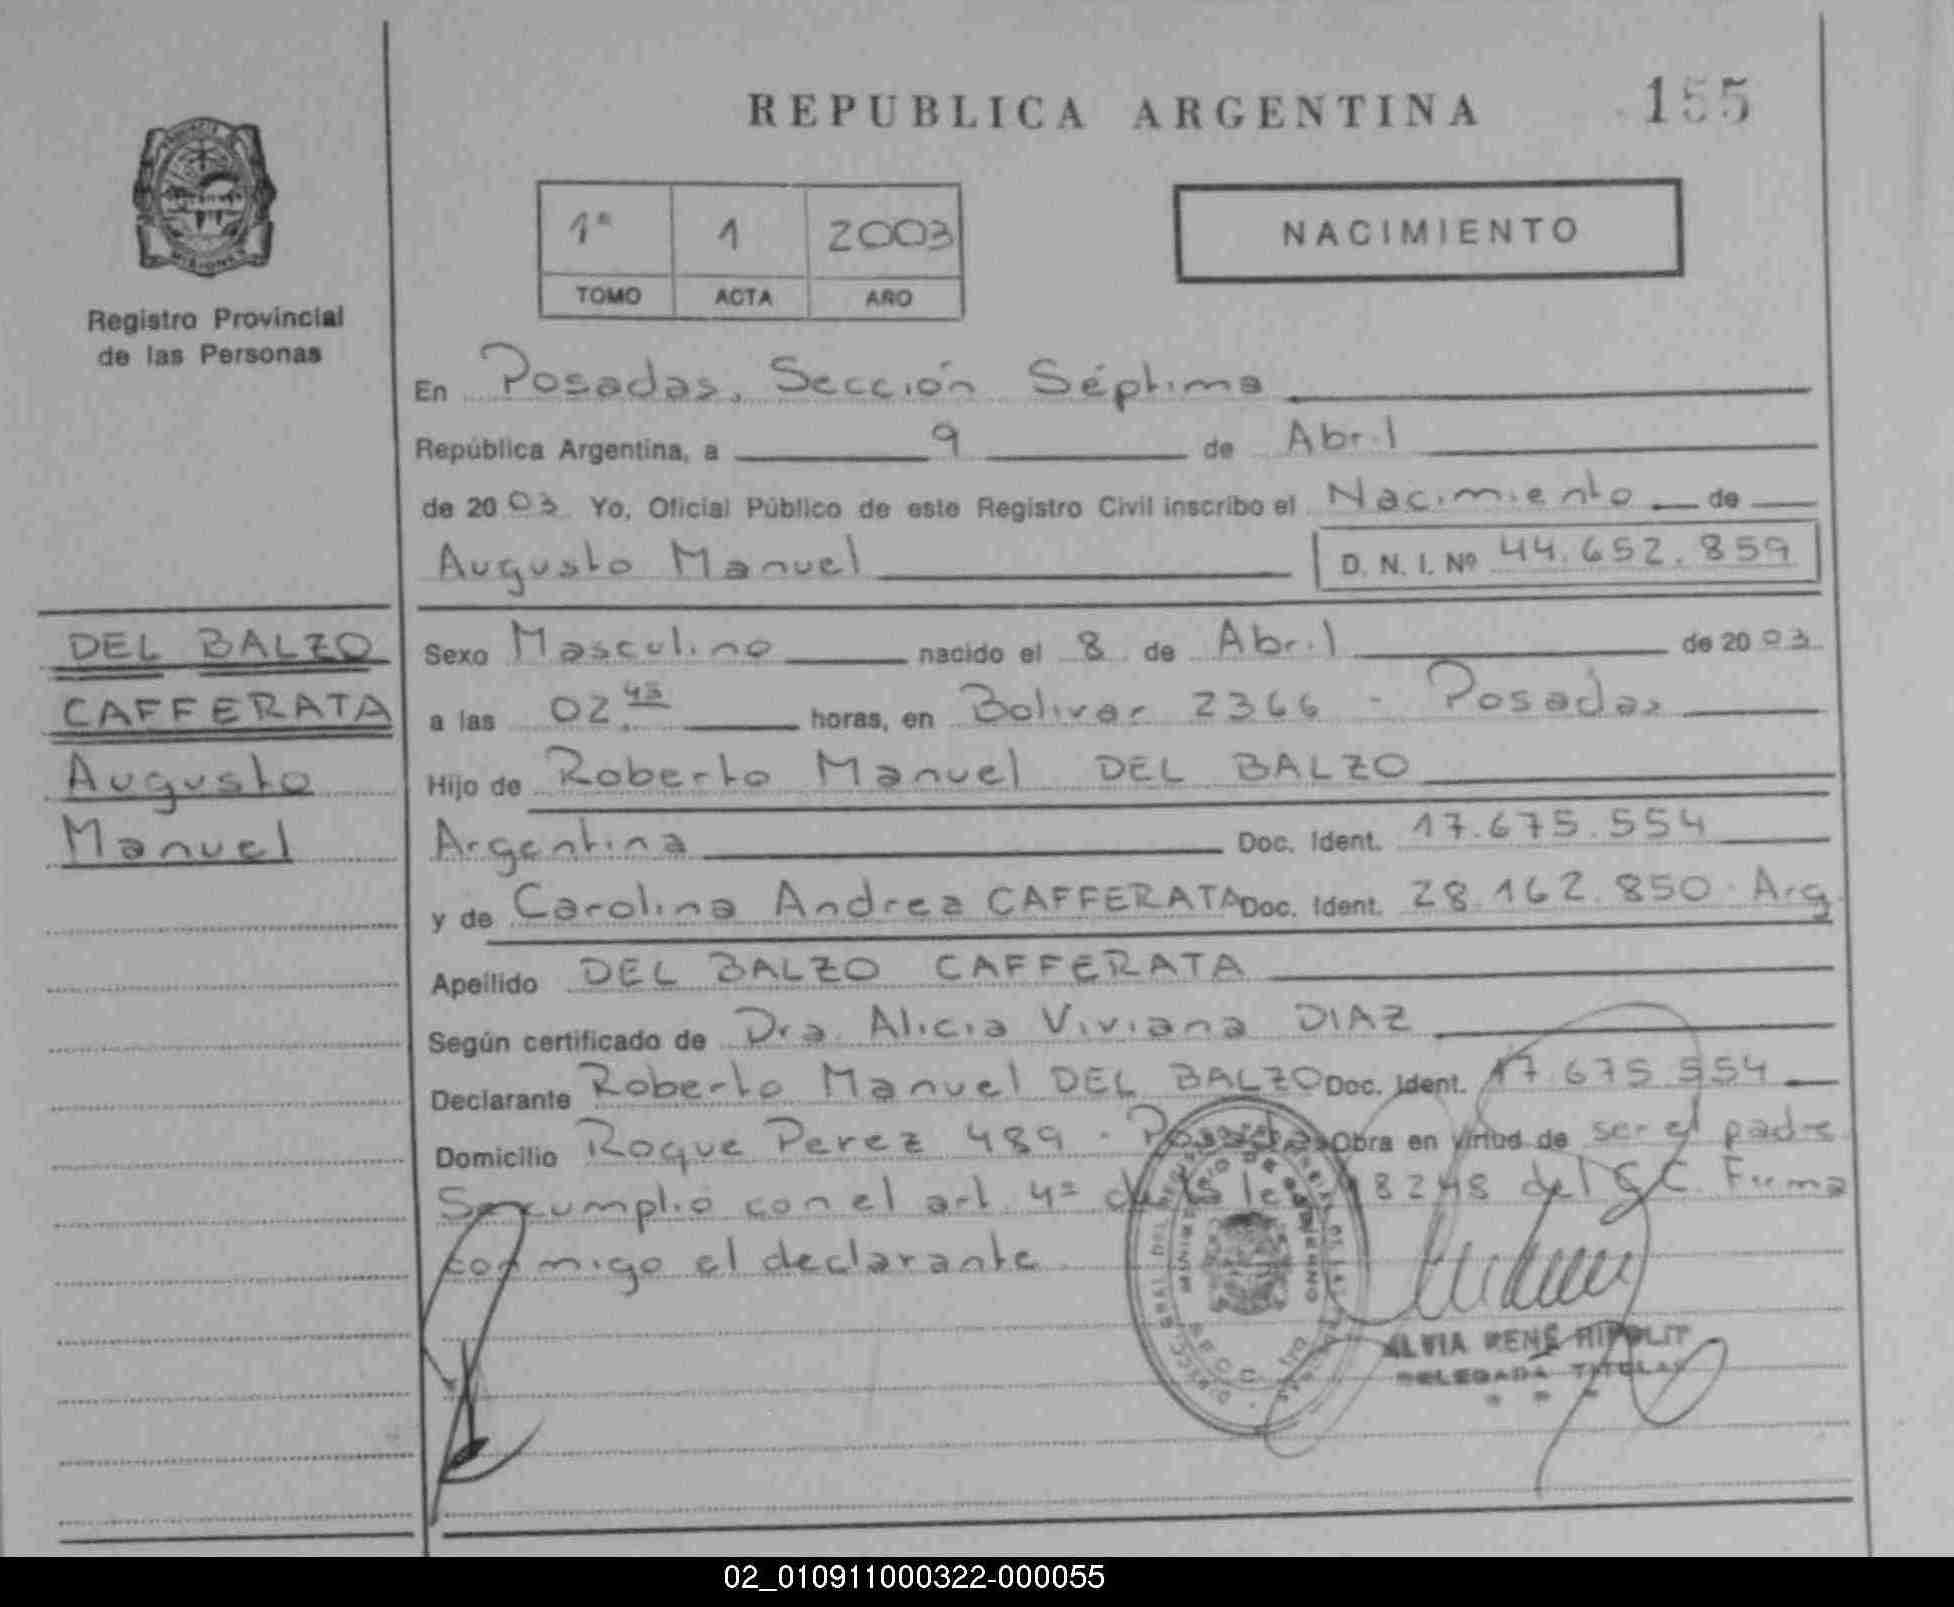 REPUBLICA ARGENTINA
155
1ª 1 2003
TOMO ACTA AÑO
NACIMIENTO
MISIONES
Registro Provincial
de las Personas
En Posadas, Sección Séptima
República Argentina, a 9 de Abril
de 2003 Yo, Oficial Público de este Registro Civil inscribo el Nacimiento de
Augusto Manuel D. N. I. Nº 44.652.859
DEL BALZO
CAFFERATA
Augusto
Manuel
Sexo Masculino nacido el 8 de Abril de 2003
a las 02.45 horas, en Bolivar 2366 - Posadas
Hijo de Roberto Manuel DEL BALZO
Argentina Doc. Ident. 17.675.554
y de Carolina Andrea CAFFERATA Doc. Ident. 28.162.850. Arg
Apellido DEL BALZO CAFFERATA
Según certificado de Dra. Alicia Viviana DIAZ
Declarante Roberto Manuel DEL BALZO Doc. Ident. 17.675.554
Domicilio Roque Perez 489 - Posadas Obra en virtud de ser el padre
Se cumplió con el art. 4º de la ley 18248 del C.C. Firma
conmigo el declarante.
RENÉ
DELEGADA TITULAR
02_010911000322-000055